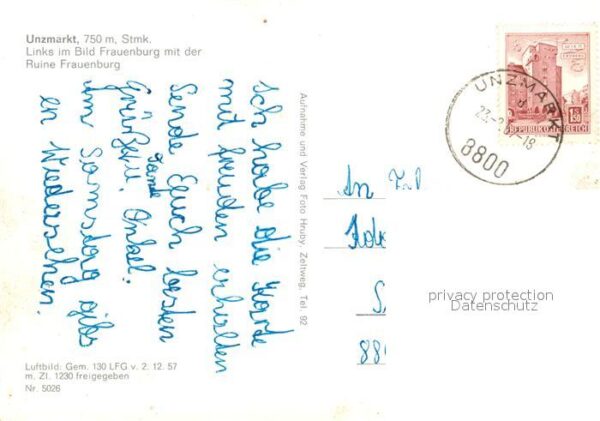 Unzmarkt, 750 m, Stmk.
Links im Bild Frauenburg mit der
Ruine Frauenburg
Ich habe die Karte
mit freuden erhalten
Sende Euch besten
Grüße
Tante
Onkel.
am Samsdag
Wiedersehen.
Aufnahme und Verlag Foto Hruby, Zeltweg, Tel 92
UNZMARKT
8800
REPUBLIK ÖSTERREICH
1.50
An
privacy protection
Datenschutz
88
Luftbild: Gem. 130 LFG v. 2. 12. 57
m. Zl. 1230 freigegeben
Nr. 5026